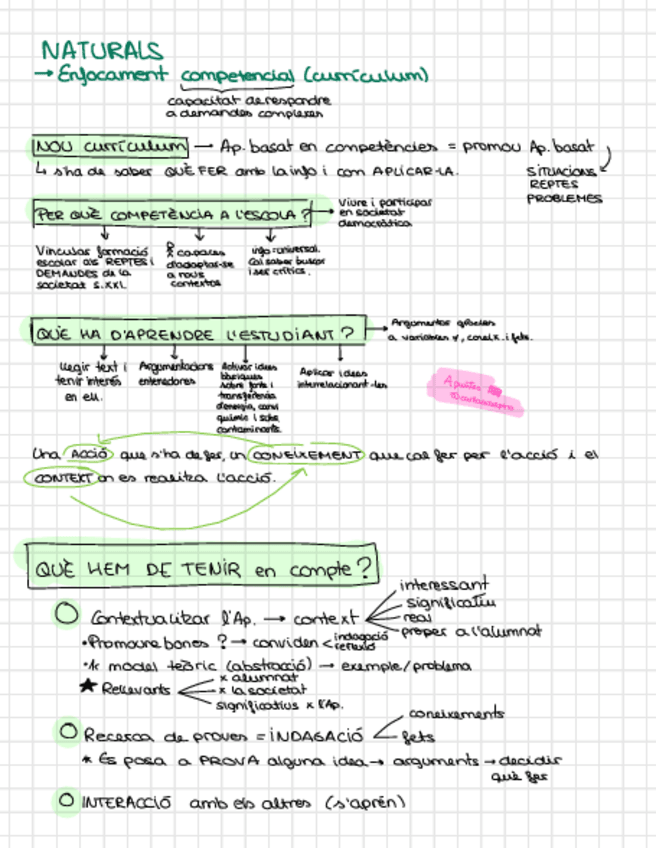 NATURALS
→ Enfocament competencial (currículum)
capacitat de respondre
a demandes complexes
NOU currículum → Ap. basat en competències = promou Ap. basat
↳ s'ha de saber QUÈ FER amb la info i com APLICAR-LA.
SITUACIONS
REPTES
PROBLEMES
PER QUÈ COMPETÈNCIA A L'ESCOLA? →
Viure i participar
en societat
democràtica
Vincular formació
escolar als REPTES i
DEMANDES de la
societat S.XXI.
capaces
d'adaptar-se
a nous
contextos
info = universal.
Cal saber buscar
i ser crítics.
QUÈ HA D'APRENDRE L'ESTUDIANT? →
Argumentar
a variables
i fets.
Llegir text i
tenir interés
en ell.
Argumentacions
entenedores
Activar idees
bàsiques
sobre fonts i
transferència
d'energia, canvi
químic i sobre
contaminants.
Aplicar idees
interrelacionant-les
Apuntes
Una ACCIÓ que s'ha de fer, un CONEIXEMENT que cal fer per l'acció i el
CONTEXT on es realitza l'acció.
QUÈ HEM DE TENIR en compte?
Contextualitzar l'Ap. → context
interessant
significatiu
real
proper a l'alumnat
• Promoure bones ? → conviden < indagació
reflexió
model teòric (abstracció) → exemple/problema
★ Rellevants
x alumnat
x la societat
significatius x l'Ap.
Recerca de proves = INDAGACIÓ
coneixements
fets
* Es posa a PROVA alguna idea → arguments → decidir
què fer
INTERACCIÓ amb els altres (s'aprèn)